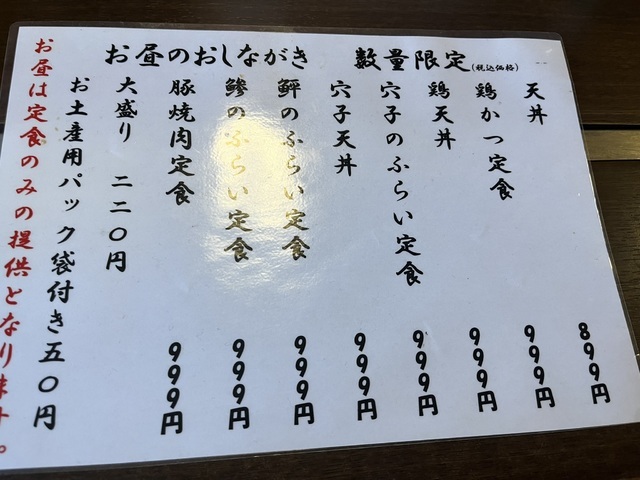 お昼のおしながき 数量限定(税込価格)
天丼 899円
鶏かつ定食 999円
鶏天丼 999円
穴子のふらい定食 999円
穴子天丼 999円
鮃のふらい定食 999円
鯵のふらい定食 999円
豚焼肉定食 999円
大盛り 二二〇円
お土産用パック袋付き五〇円
お昼は定食のみの提供となります。